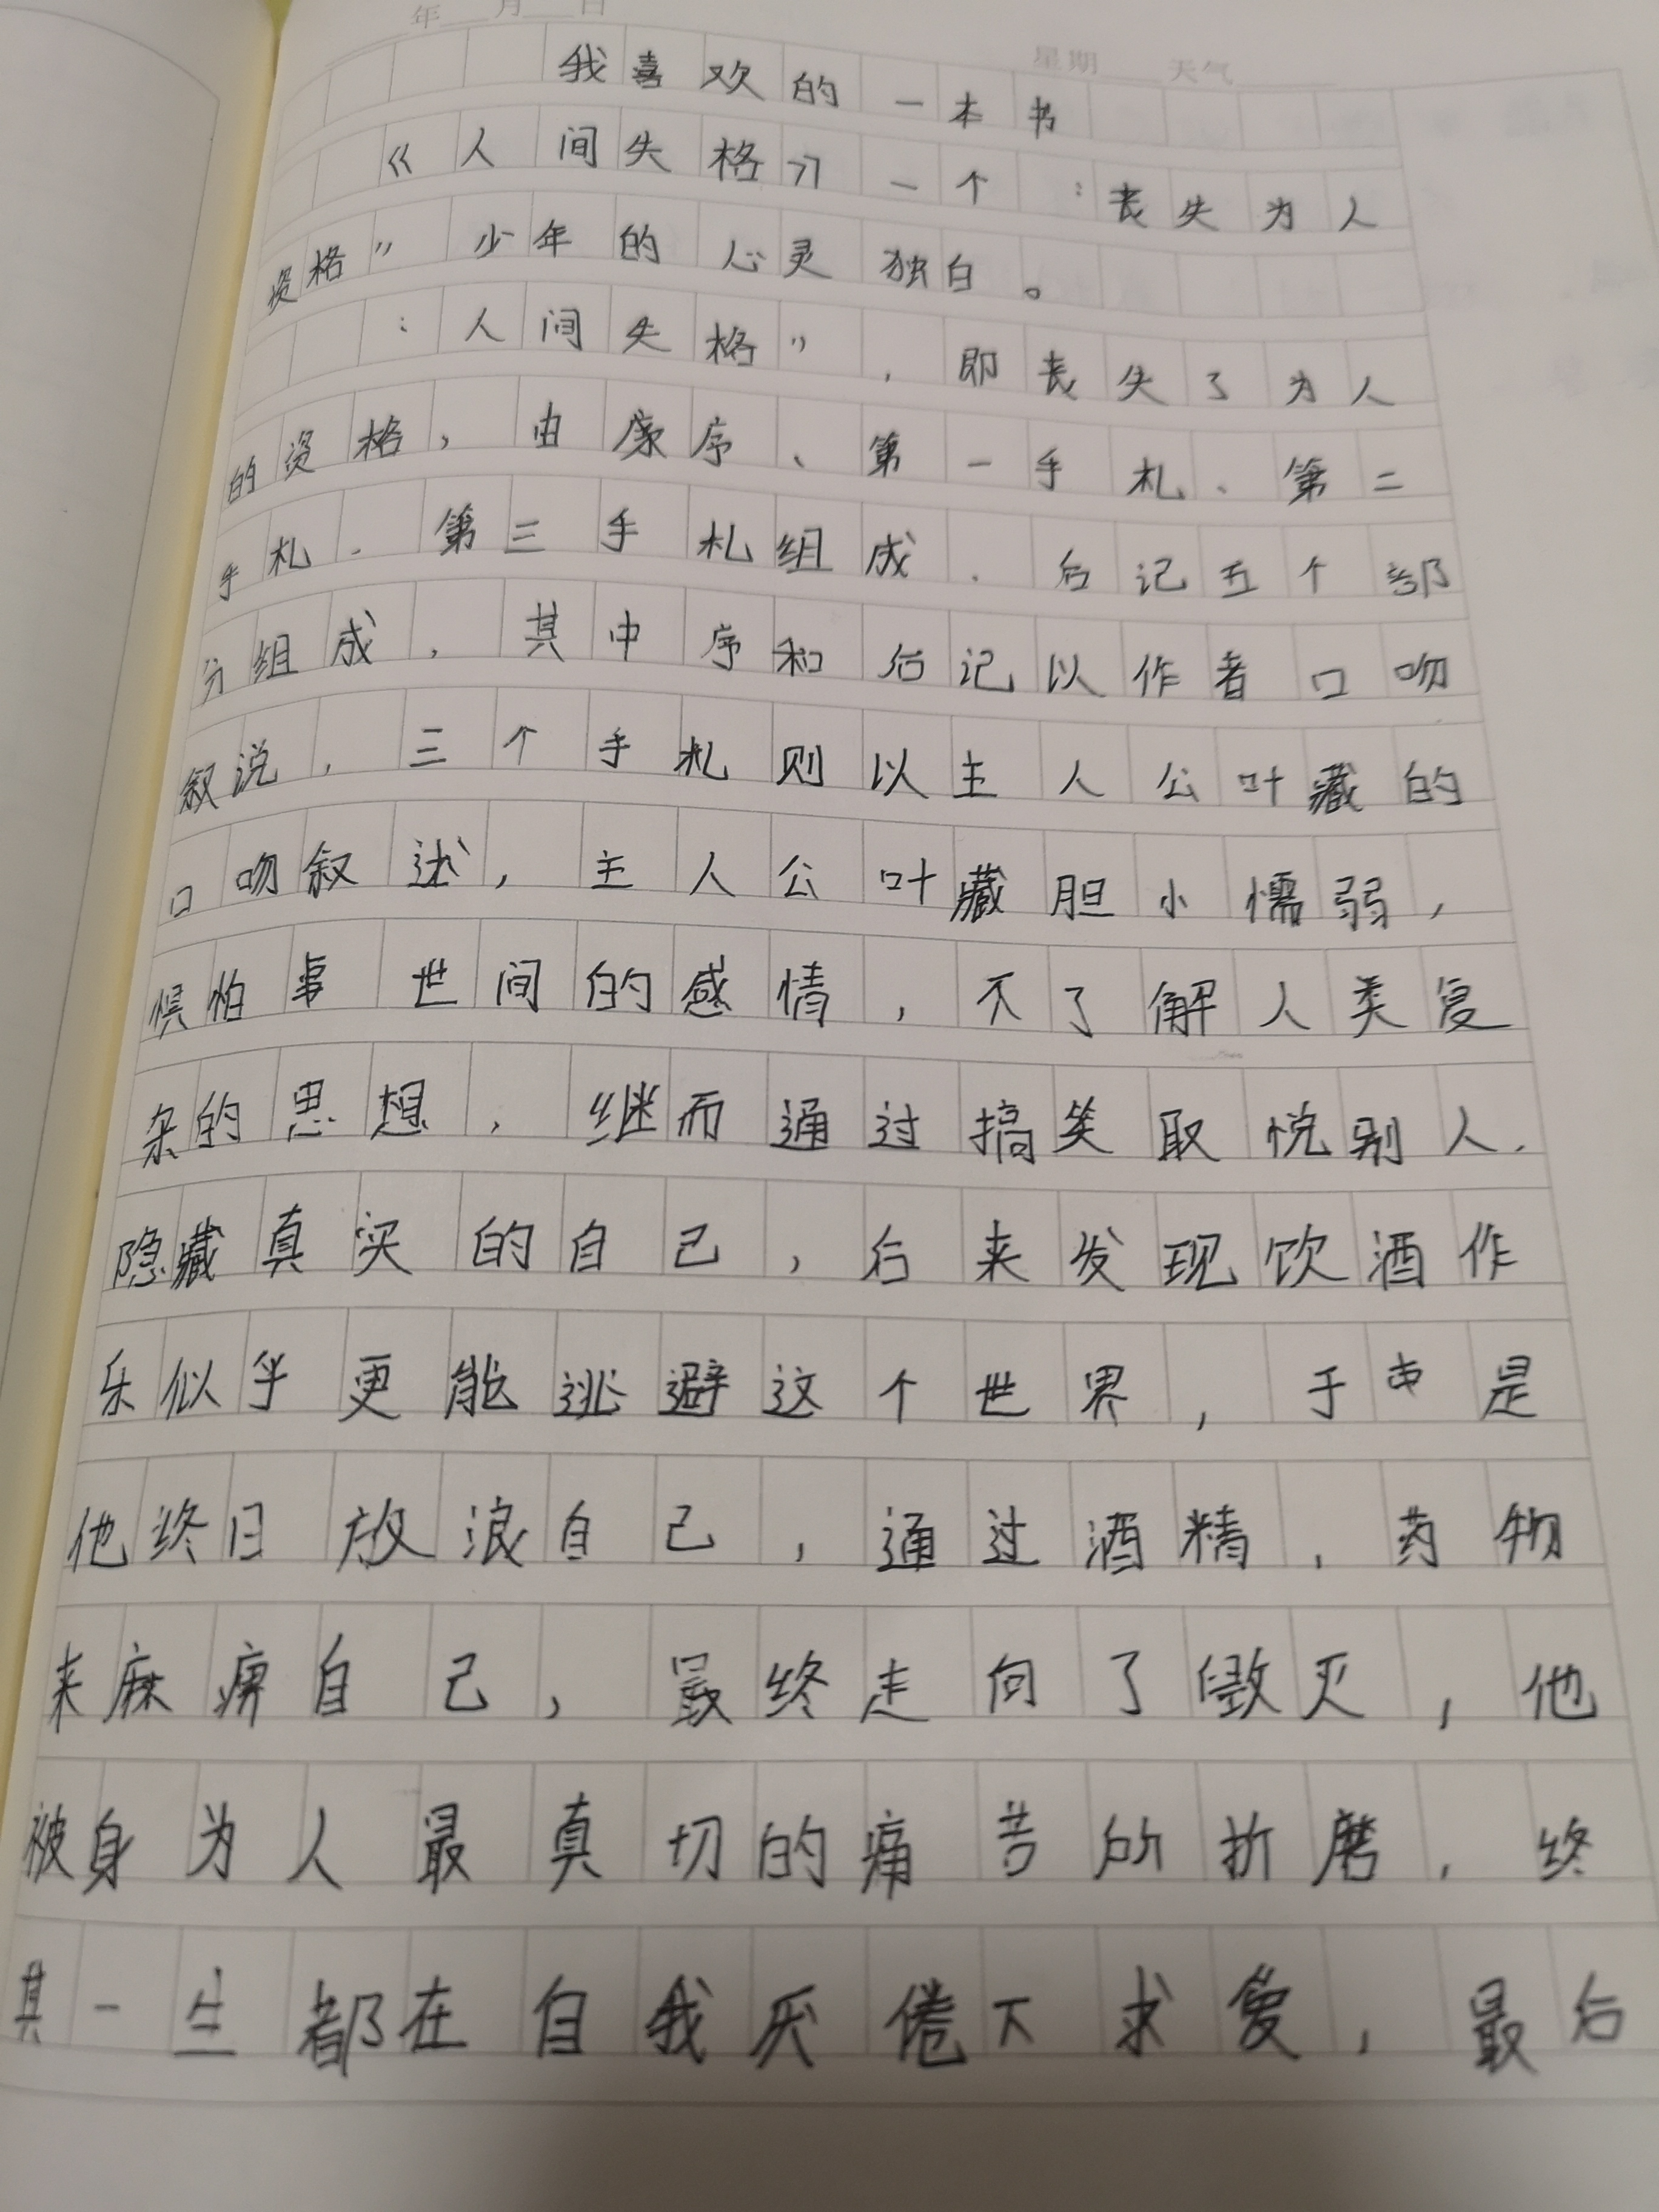 年 月 日
星期 天气
我喜欢的一本书
《人间失格》一个“丧失为人
资格”少年的心灵独白。
“人间失格”,即丧失了为人
的资格,由序、第一手札、第二
手札、第三手札组成、后记五个部
分组成,其中序和后记以作者口吻
叙说,三个手札则以主人公叶藏的
口吻叙述,主人公叶藏胆小懦弱,
惧怕世间的感情,不了解人类复
杂的思想,继而通过搞笑取悦别人,
隐藏真实的自己,后来发现饮酒作
乐似乎更能逃避这个世界,于是
他终日放浪自己,通过酒精,药物
来麻痹自己,最终走向了毁灭,他
被身为人最真切的痛苦所折磨,终
其一生都在自我厌倦下求爱,最后